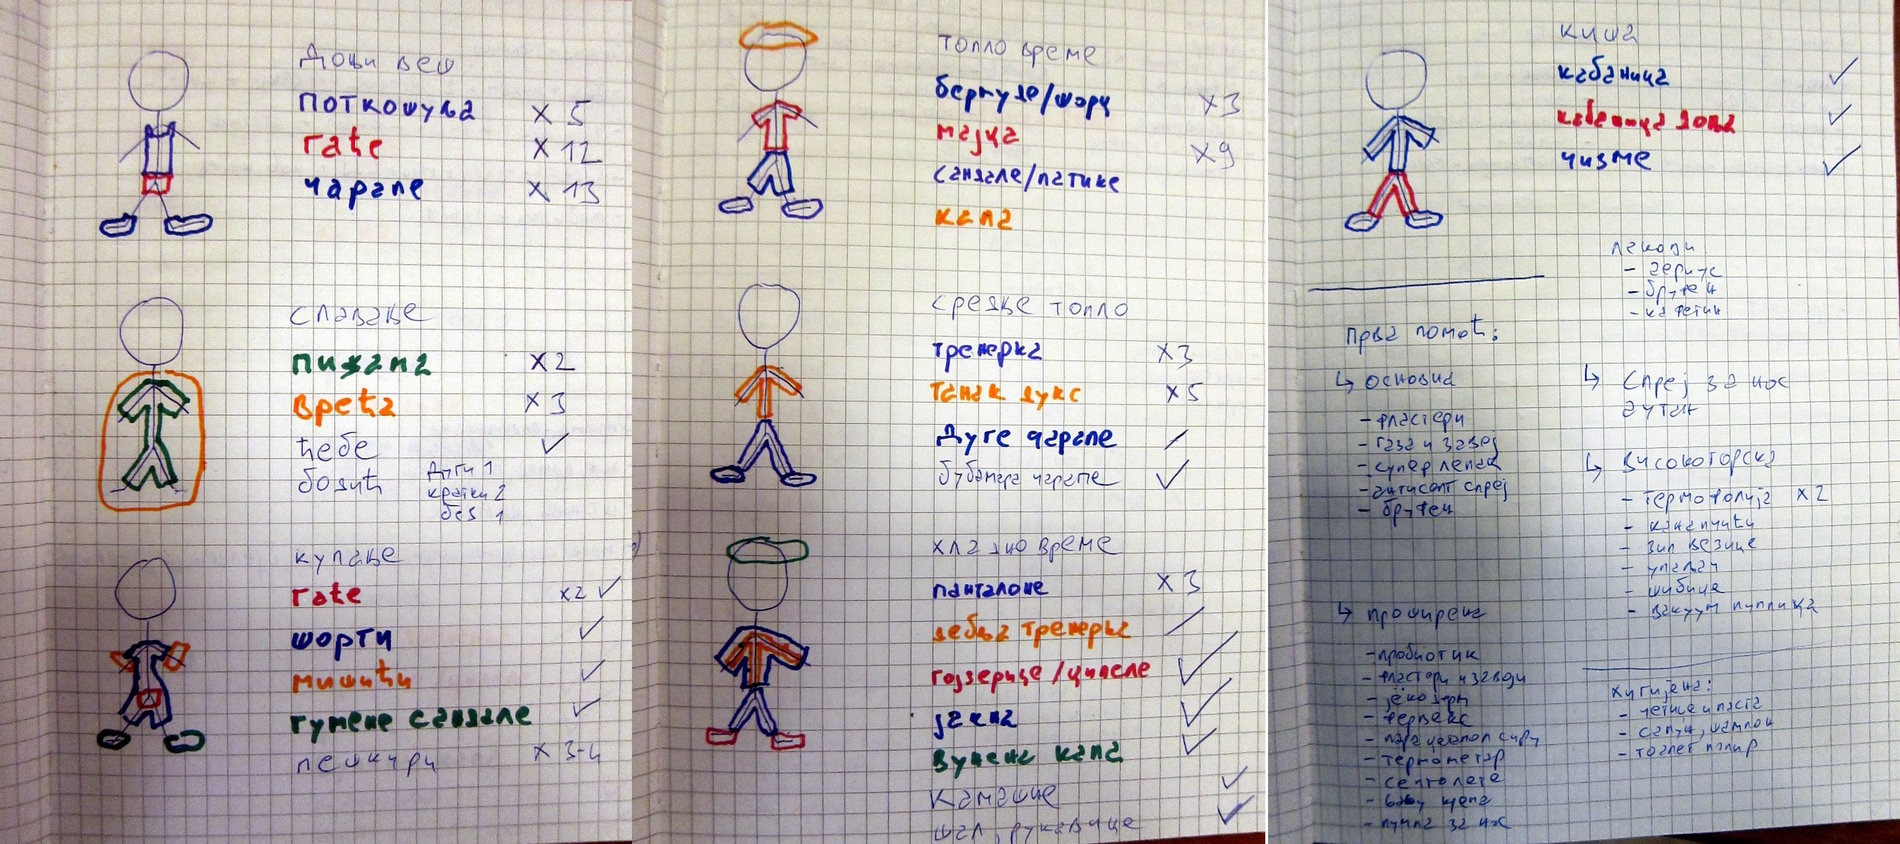 Доњи веш
поткошуља x 5
гаће x 12
чарапе x 13
спавање
пижама x 2
врећа x 3
ћебе ✓
бодић дуги 1
кратки 2
без 1
купање
гаће x2 ✓
шорти ✓
мишићи ✓
гумене сандале ✓
пешкири x 3-4
топло време
бермуде/шорц x3
мајца x9
сандале/патике
капа
средње топло
тренерка x 3
танак дукс x 5
Дуге чарапе
бубамара чарапе ✓
хладно време
панталоне x 3
дебља тренерка
гојзерице/ципеле ✓
јакна ✓
вунена капа ✓
камашне ✓
шал, рукавице ✓
киша
кабаница ✓
кабаница доња ✓
чизме ✓
лекови
- аериус
- бруфен
- кафетин
Прва помоћ:
↳ основна
- фластери
- газа и завој
- супер лепак
- антисепт спреј
- бруфен
↳ спреј за нос
аутан
↳ високогорска
- термофолија x2
- канапчићи
- зип везице
- упаљач
- шибице
- вакуум пумпица
↳ проширена
- пробиотик
- фластери и завоји
- јекодерм
- фервекс
- парацетамол сируп
- термометар
- септолете
- baby крема
- пумпа за нос
хигијена:
- четке и паста
- сапун, шампон
- тоалет папир